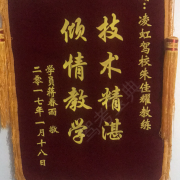 ：凌虹驾校朱佳耀教练
技术精湛
倾情教学
学员蒋春雨 敬
二零一七年一月十八日